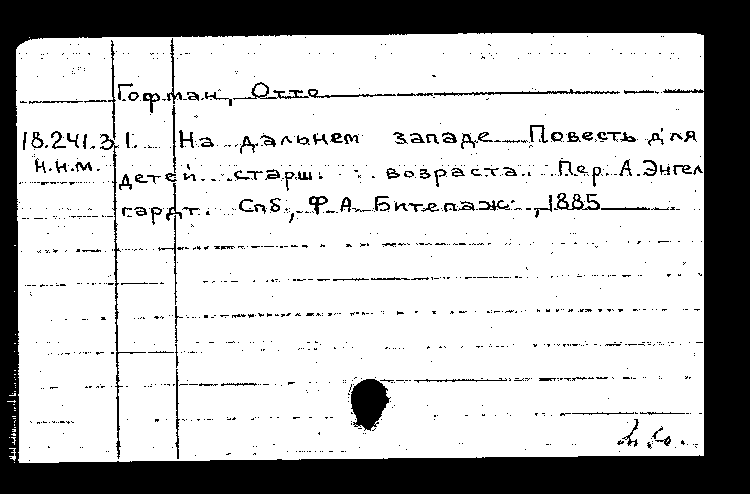 Гофман, Отто
18.241.3 1. На дальнем западе Повесть для
н.н.м. детей старш. возраста. Пер. А. Энгел
гардт. Спб, Ф. А. Битепаж, 1885